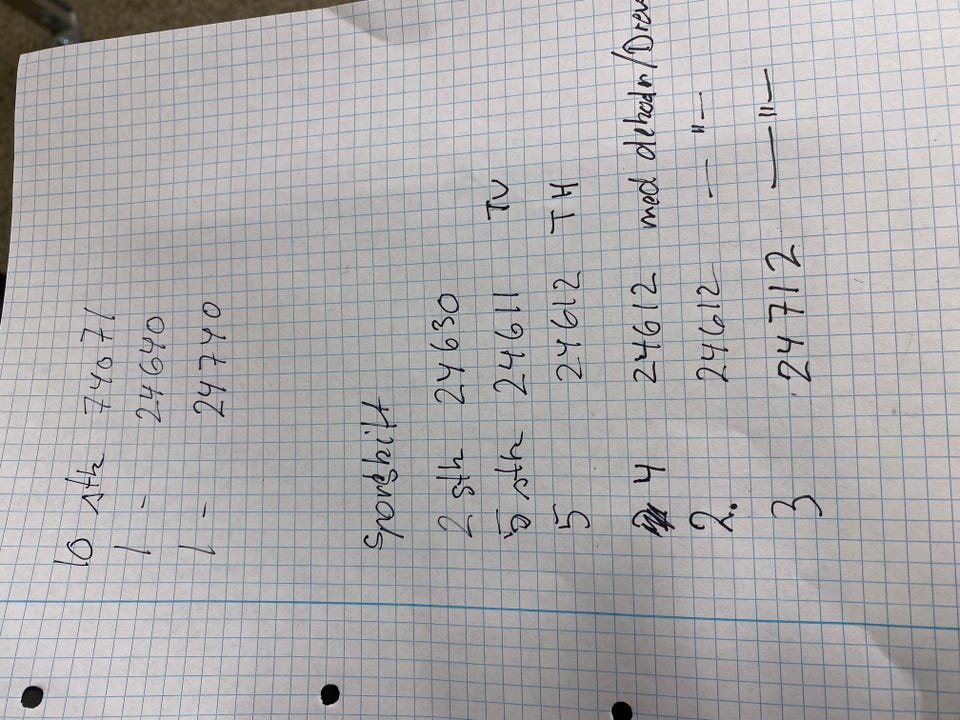 10 stk 74071
1 - 24640
1 - 24740
Sporskift
2 stk 24630
5 stk 24611 TV
5 24612 TH
4 24612 med dekodr/Drev
2. 24612 — " —
3 24712 — " —